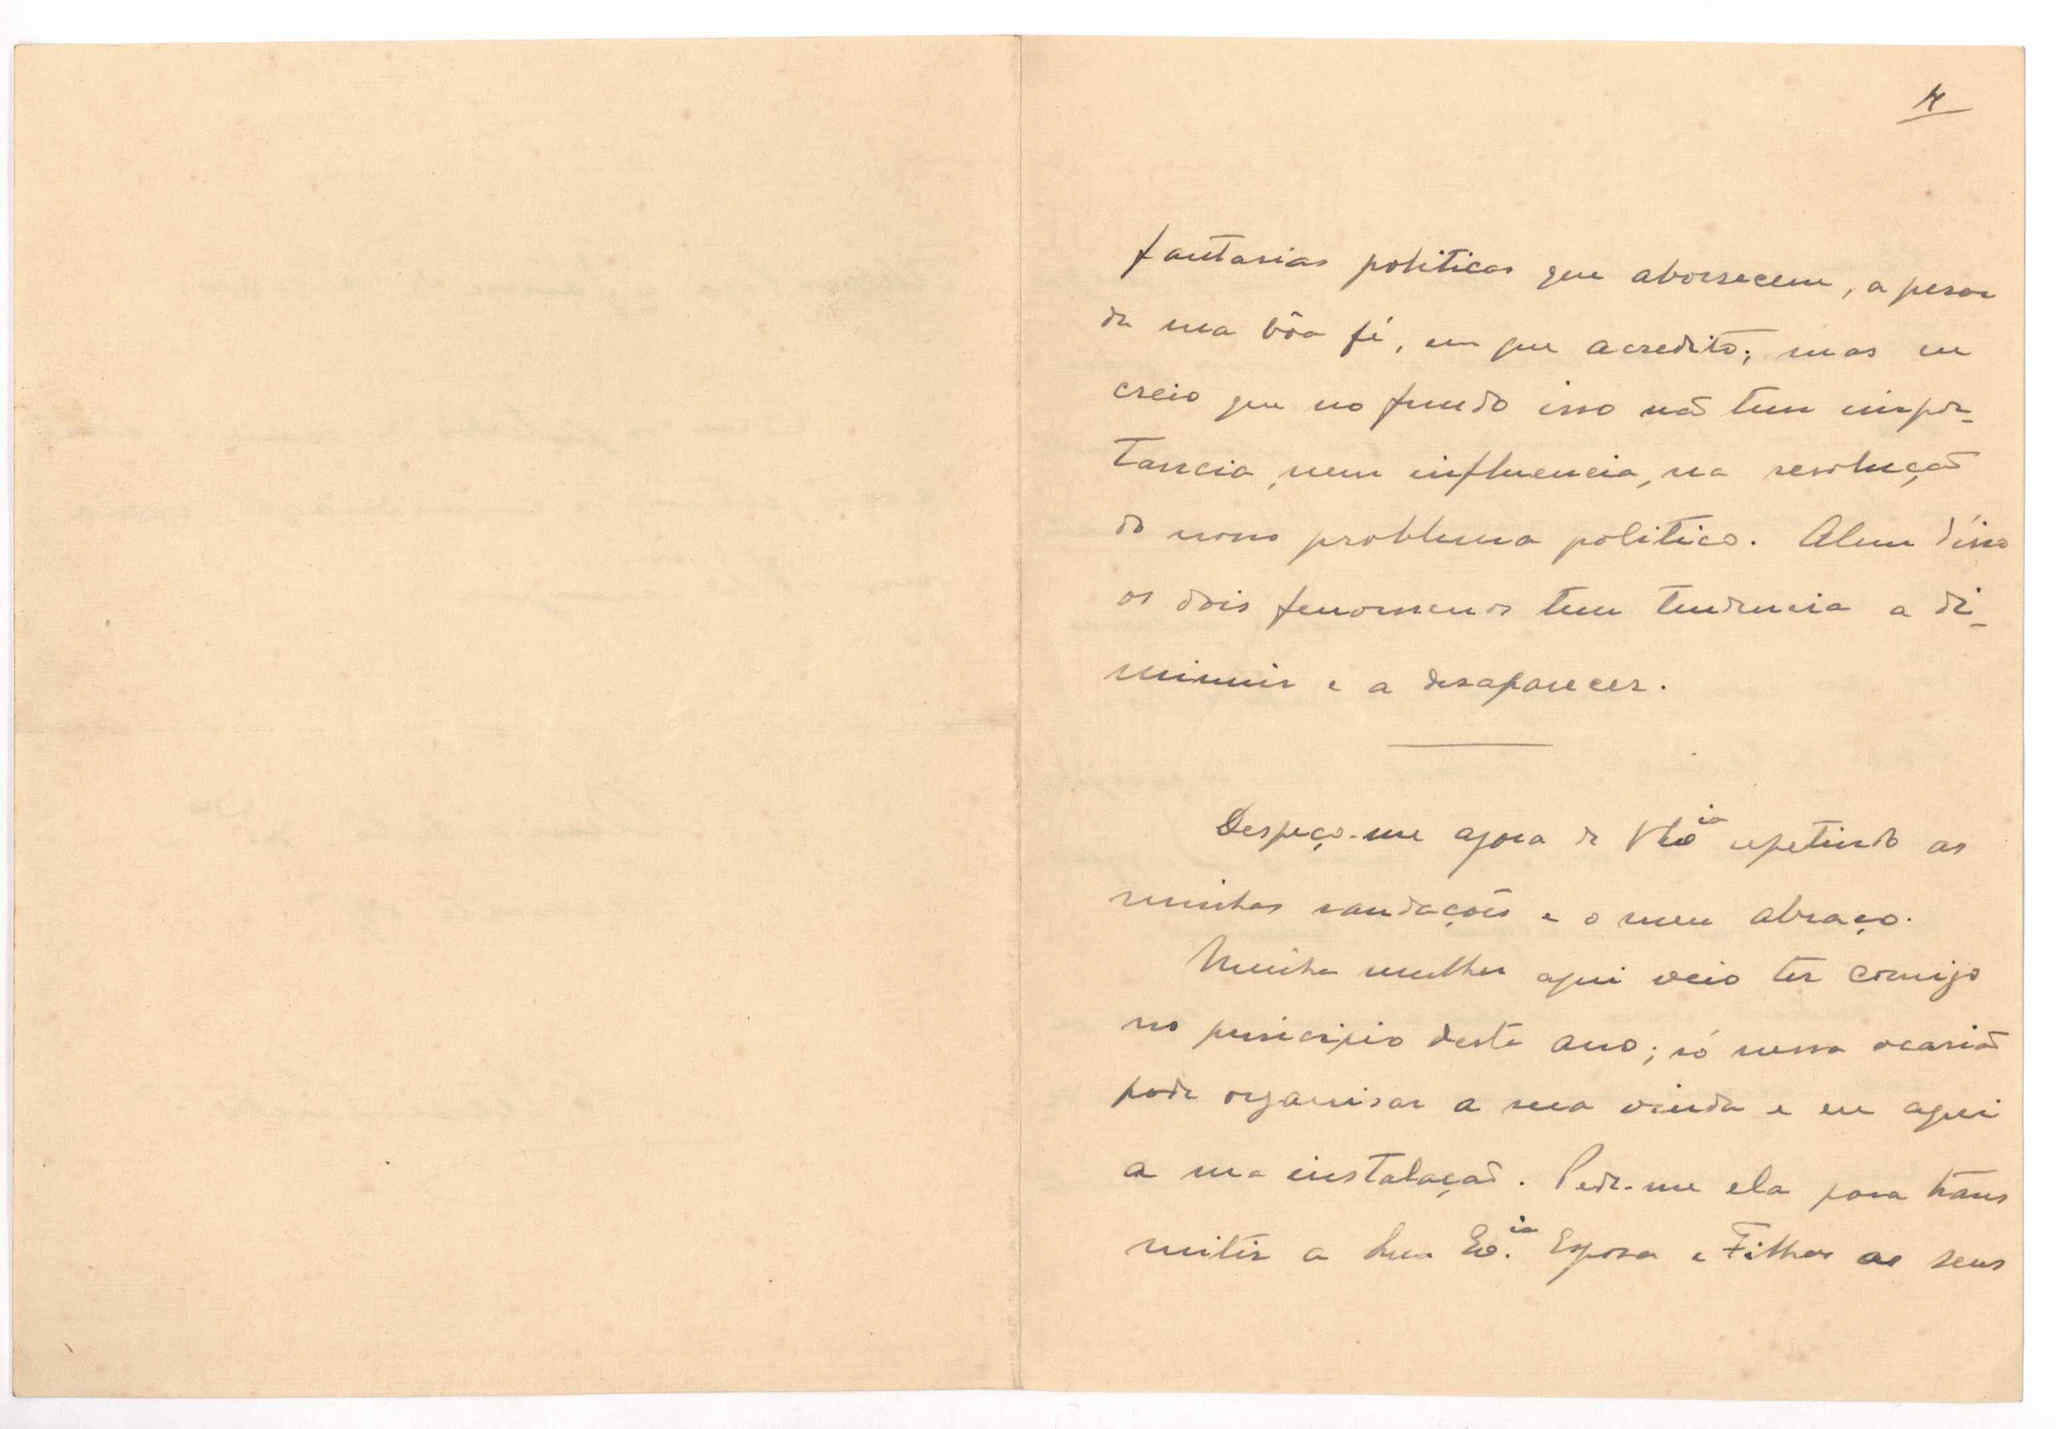 4
fantasias politicas que aborrecem, a pesar
da sua bôa fé, em que acredito; mas eu
creio que no fundo isso não tem impor-
tancia, nem influencia, na resolução
do nosso problema politico. Alem disso
os dois fenomenos tem tendencia a di-
minuir e a desaparecer.
Despeço-me agora de V. Ex.ia repetindo as
minhas saudações e o meu abraço.
Minha mulher aqui veio ter comigo
no principio deste ano; só nessa ocasião
pode organisar a sua vinda e eu aqui
a sua instalação. Pede-me ela para trans
mitir a Sua Ex.ia Esposa e Filhas os seus